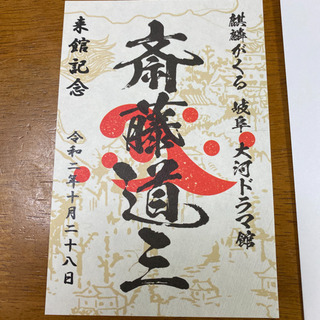 麒麟がくる 岐阜 大河ドラマ館
斎藤道三
来館記念
令和二年十月二十八日